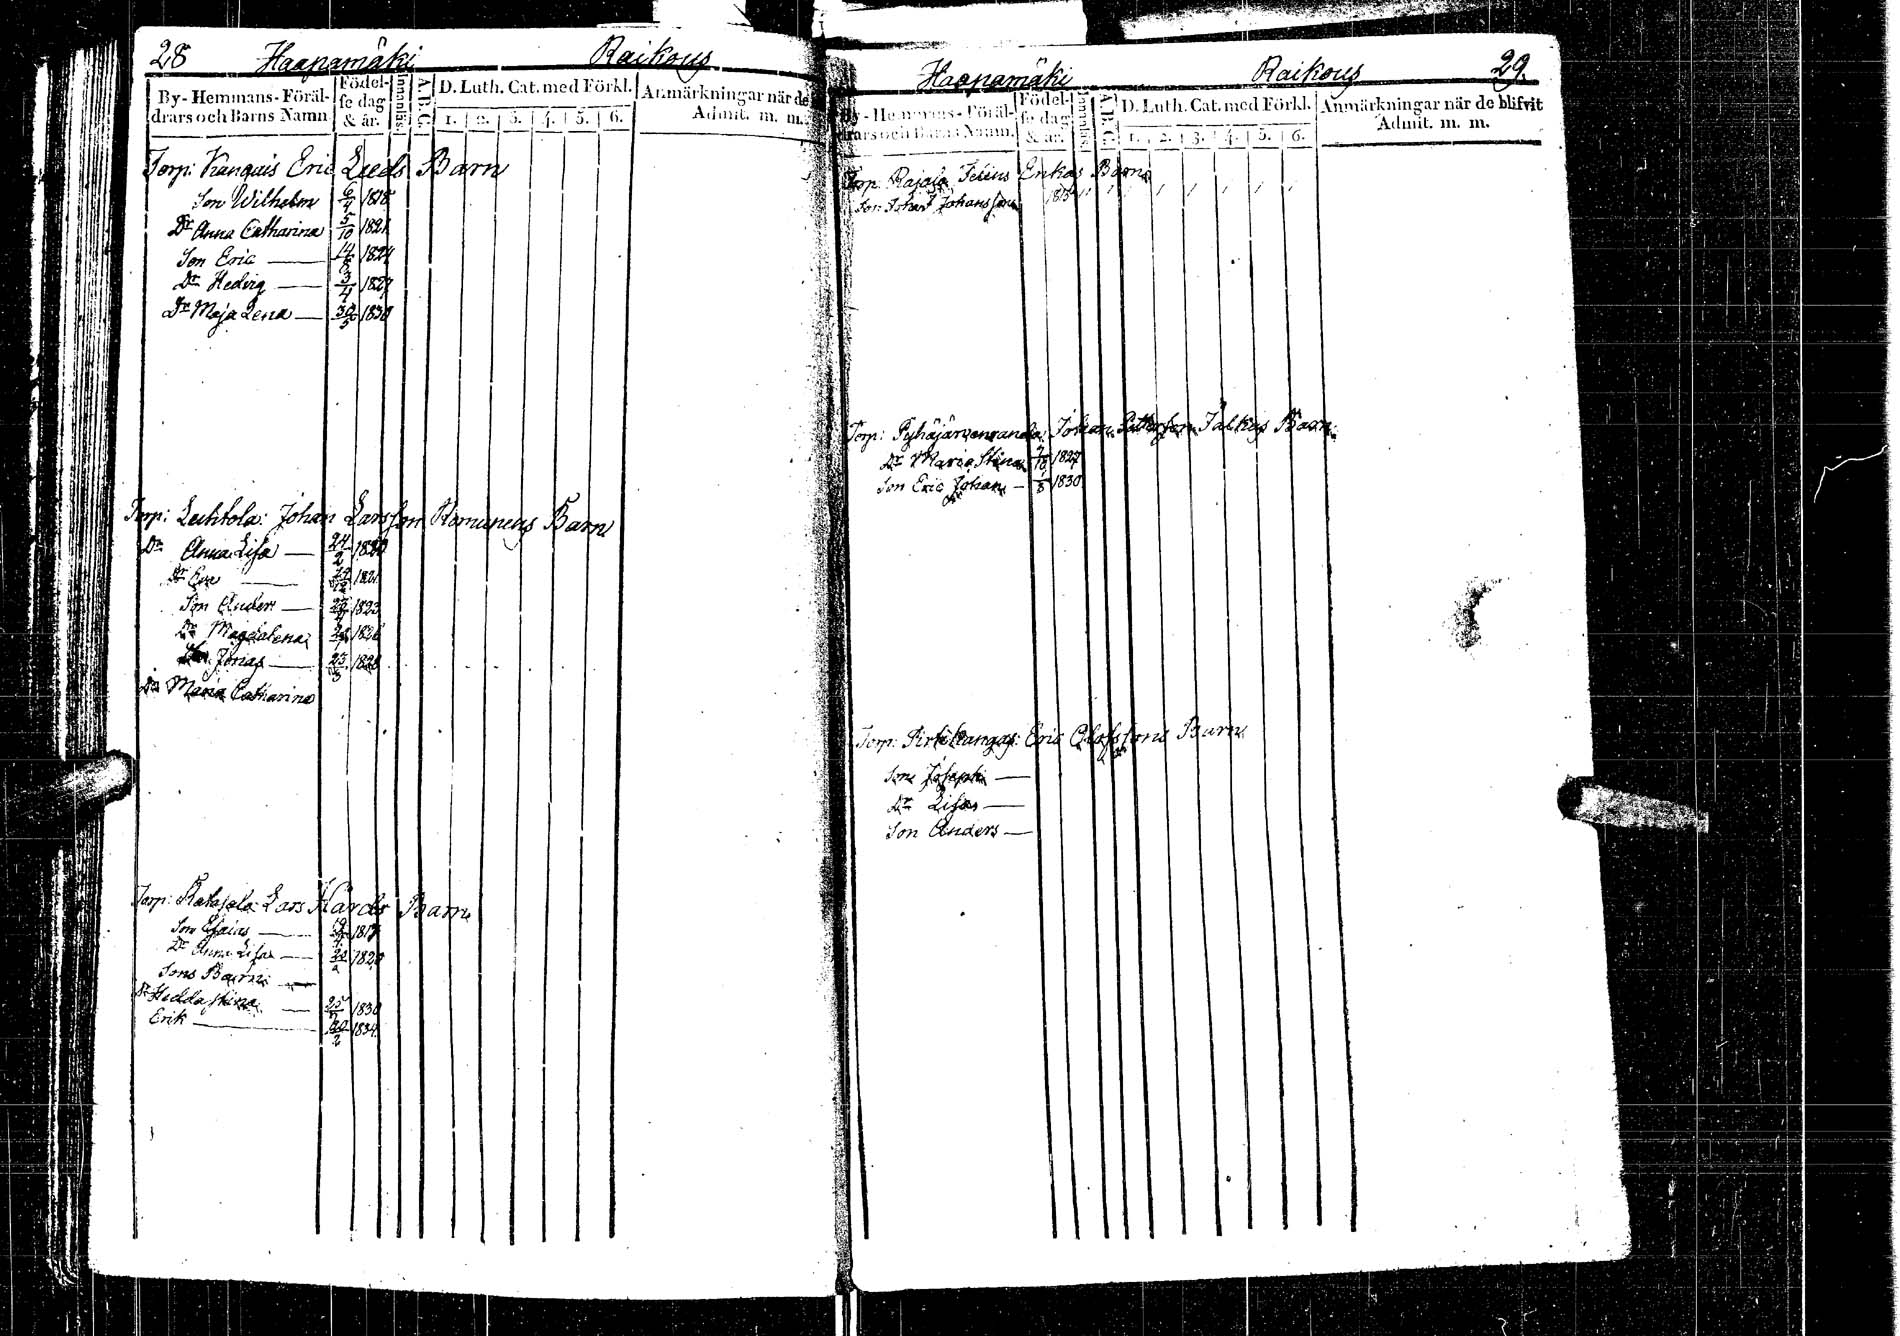 28 Haapamäki Raikous
By- Hemmans- Föräl-
drars och Barns Namn
Födel-
se dag
& år.
Innanläs.
A.B.C.
D. Luth. Cat. med Förkl.
1. 2. 3. 4. 5. 6.
Anmärkningar när de
Admit. m. m.
Torp: Kanguis Eric Leeds Barn
Son Wilhelm 6/4 1818
Dr Anna Catharina 5/10 1821
Son Eric 14/8 1824
Dr Hedvig 3/4 1827
Dr Maja Lena 30/5 1830
Torp: Lechtola: Johan Larsson Romunens Barn
Dr Anna Lisa 24/2
Dr Eva 1821
Son Anders 1823
Dr Magdalena 1826
Jonas 23/3 1828
Dr Maria Catharina
Torp: Ratajala: Lars Hårds Barn
Son Esaias 1817
Dr Anna Lisa 1820
Sons Barn
Dr Hedda Stina 25/7 1830
Erik 20/2 1834
Haapamäki Raikous 29.
By- Hemmans- Föräl-
drars och Barns Namn.
Födel-
se dag
& år.
Innanläs.
A.B.C.
D. Luth. Cat. med Förkl.
1. 2. 3. 4. 5. 6.
Anmärkningar när de blifvit
Admit. m. m.
Torp: Rajala Enkas Barn
Son Johan Johansson 1815
Torp: Pyhäjärvenranda: Johan Pettersson Jälkös Barn
Dr Maria Stina 1827
Son Eric Johan 1/8 1830
Torp: Pirtikangas: Eric Olofssons Barn
Son Joseph
Dr Lisa
Son Anders